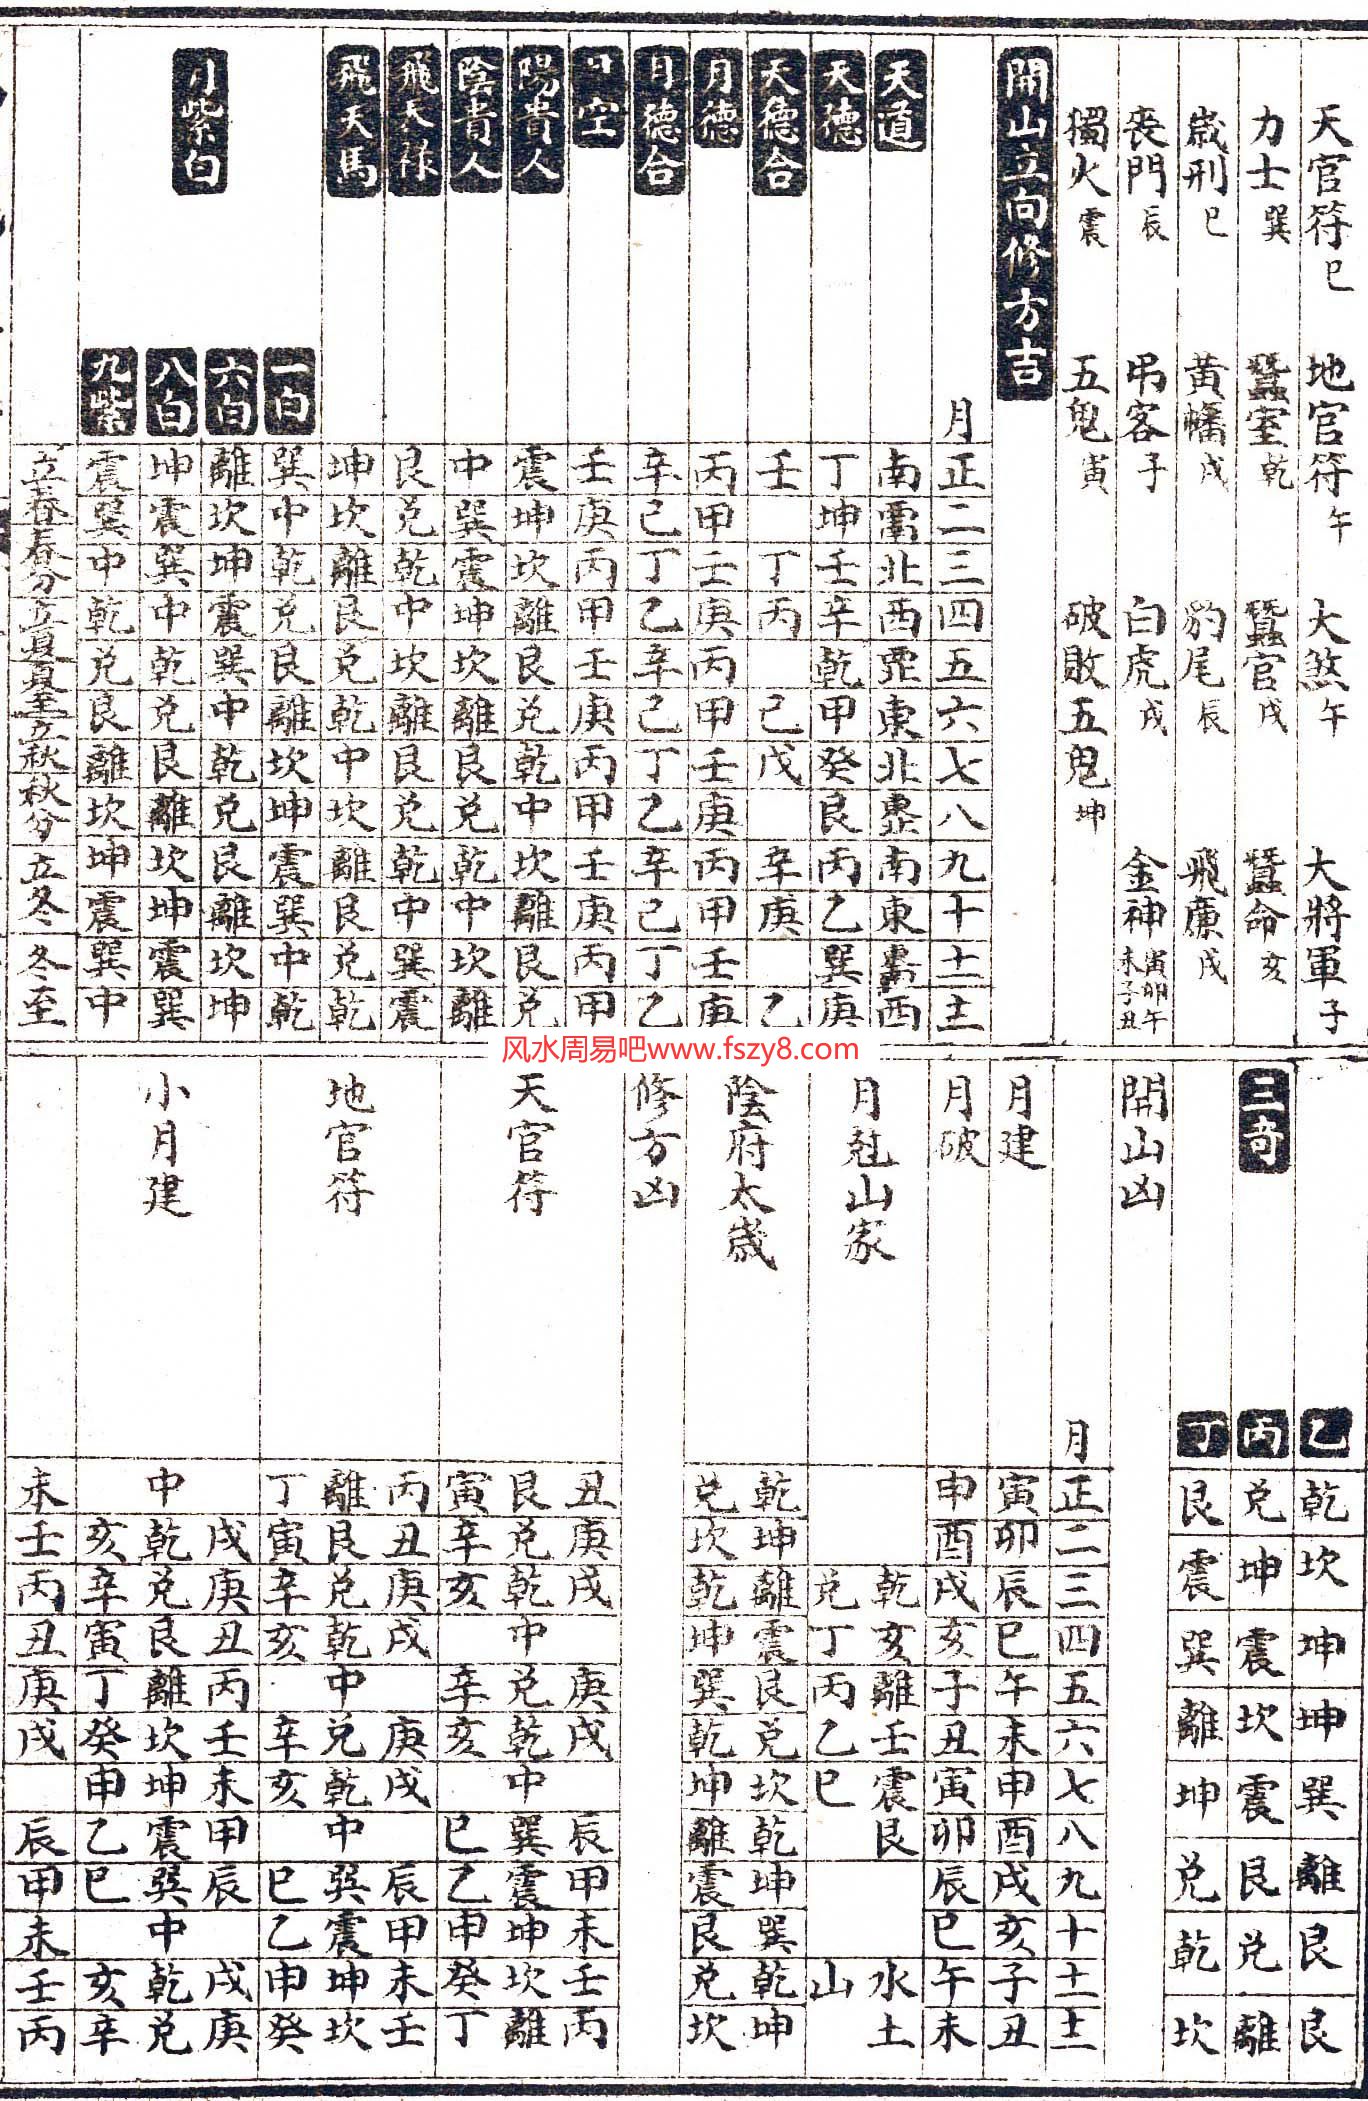 天官符巳 地官符午 大煞午 大將軍子
力士巽 蠶室乾 蠶官戌 蠶命亥
歲刑巳 黃幡戌 豹尾辰 飛廉戌
喪門辰 弔客子 白虎戌 金神寅卯午未子丑
獨火震 五鬼寅 破敗五鬼坤
開山立向修方吉
月正二三四五六七八九十十一十二
天道 南 北西 東北 南東 西
天德 丁坤壬辛乾甲癸艮丙乙巽庚
天德合 壬 丁丙 己戊 辛庚 乙
月德 丙甲壬庚丙甲壬庚丙甲壬庚
月德合 辛己丁乙辛己丁乙辛己丁乙
月空 壬庚丙甲壬庚丙甲壬庚丙甲
陽貴人 震坤坎離艮兌乾中坎離艮兌
陰貴人 中巽震坤坎離艮兌乾中坎離
飛天祿 艮兌乾中坎離艮兌乾中巽震
飛天馬 坤坎離艮兌乾中坎離艮兌乾
月紫白
一白 巽中乾兌艮離坎坤震巽中乾
六白 離坎坤震巽中乾兌艮離坎坤
八白 坤震巽中乾兌艮離坎坤震巽
九紫 震巽中乾兌艮離坎坤震巽中
立春春分立夏夏至立秋秋分立冬冬至
风水周易吧www.fszy8.com
三奇
乙 乾坎坤坤巽離艮艮
丙 兌坤震坎震艮兌離
丁 艮震巽離坤兌乾坎
開山凶
月正二三四五六七八九十十一十二
月建 寅卯辰巳午未申酉戌亥子丑
月破 申酉戌亥子丑寅卯辰巳午未
月尅山家
乾亥離壬震艮 水土
兌丁丙乙巳 山
陰府太歲
乾坤離震艮兌坎乾坤巽乾坤
兌坎乾坤巽乾坤離震艮兌坎
修方凶
天官符
丑庚戌 庚戌 辰甲未壬丙
艮兌乾中兌乾中巽震坤坎離
寅辛亥 辛亥 巳乙申癸丁
地官符
丙丑庚戌 庚戌 辰甲未壬
離艮兌乾中兌乾中巽震坤坎
丁寅辛亥 辛亥 巳乙申癸
小月建
戌庚丑丙壬未甲辰 戌庚
中乾兌艮離坎坤震巽中乾兌
亥辛寅丁癸申乙巳 亥辛
未壬丙丑庚戌 辰甲未壬丙